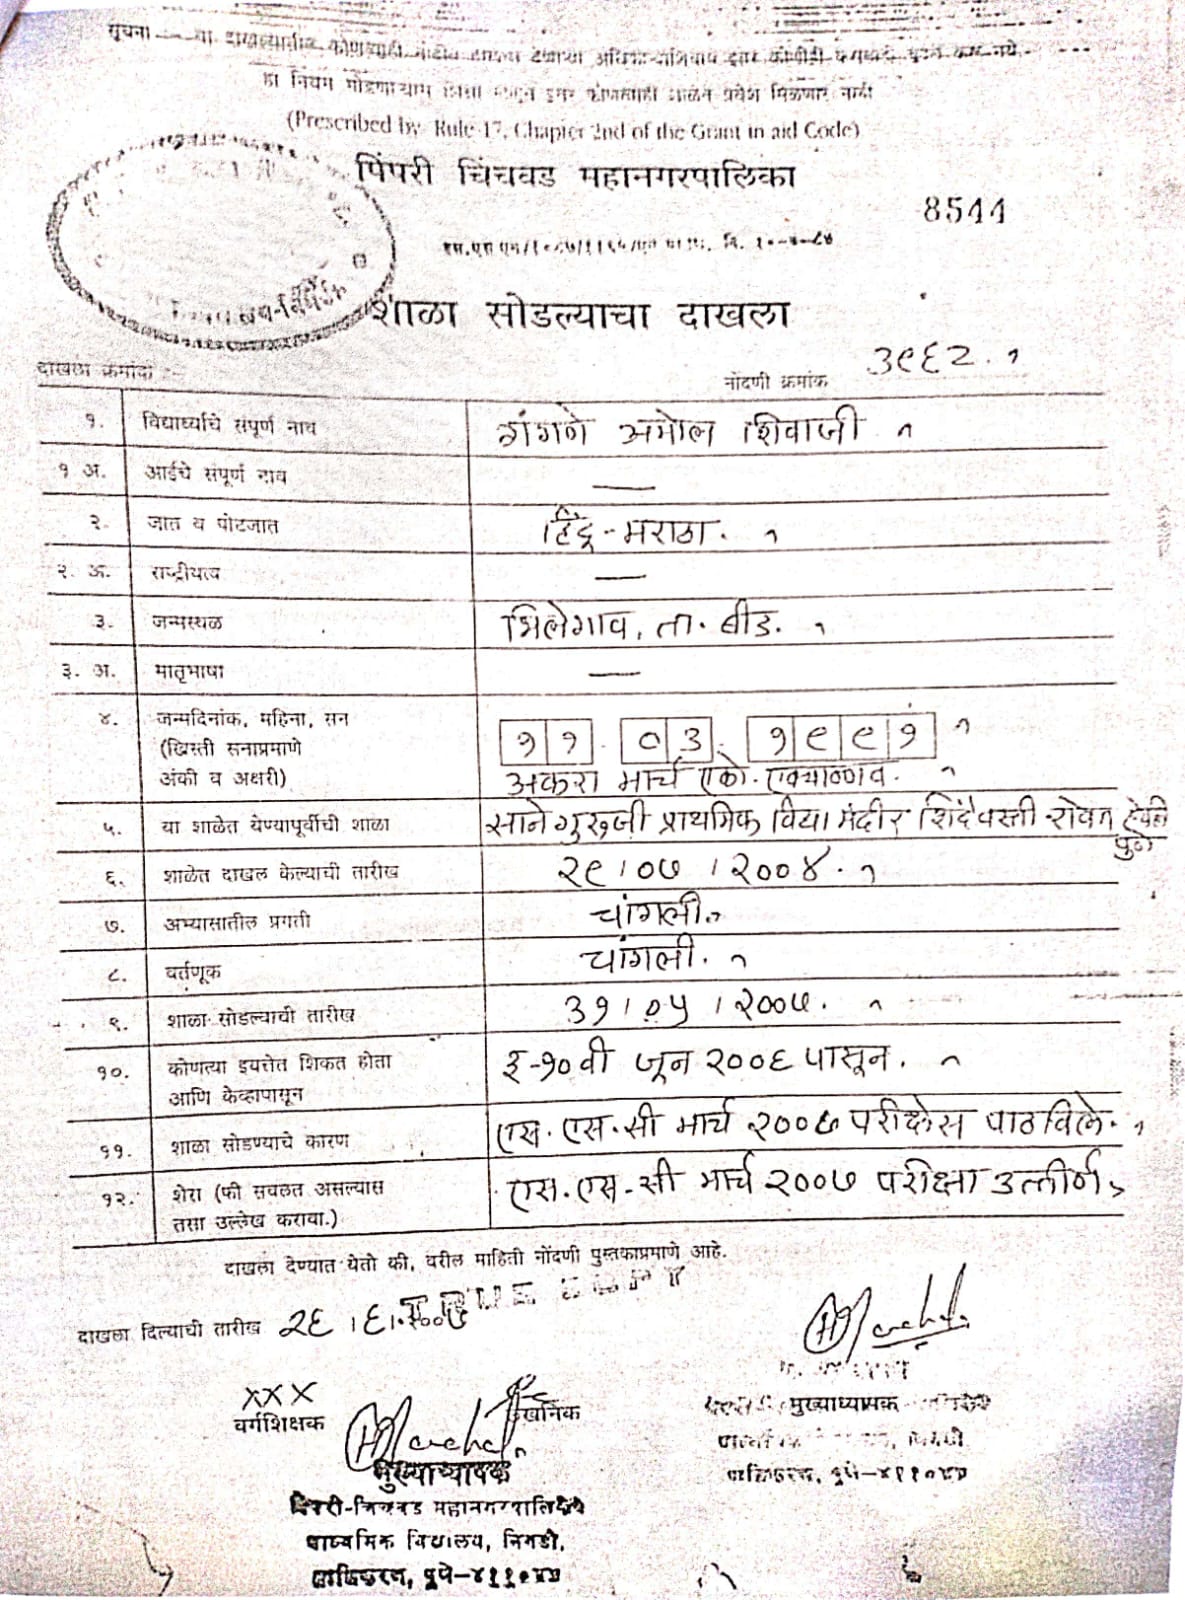 सूचना - या दाखल्यातील कोणत्याही
हा नियम मोडणाऱ्यास कोणत्याही शाळेत प्रवेश मिळणार नाही
(Prescribed by Rule 17, Chapter 2nd of the Grant in aid Code)
पिंपरी चिंचवड महानगरपालिका
8544
शाळा सोडल्याचा दाखला
दाखला क्रमांक :-
नोंदणी क्रमांक ३९६२.
१. विद्यार्थ्याचे संपूर्ण नाव गंगणे अमोल शिवाजी
१ अ. आईचे संपूर्ण नाव —
२. जात व पोटजात हिंदू-मराठा.
२. अ. राष्ट्रीयत्व —
३. जन्मस्थळ भिलेगाव, ता. बीड.
३. अ. मातृभाषा —
४. जन्मदिनांक, महिना, सन ११ ०३ १९९१
(ख्रिस्ती सनाप्रमाणे
अंकी व अक्षरी) अकरा मार्च एको. एक्याण्णव.
५. या शाळेत येण्यापूर्वीची शाळा सानेगुरुजी प्राथमिक विद्या मंदीर शिंदेवस्ती
पुणे
६. शाळेत दाखल केल्याची तारीख २९।०७।२००४.
७. अभ्यासातील प्रगती चांगली.
८. वर्तणूक चांगली.
९. शाळा सोडल्याची तारीख ३१।०५।२००७.
१०. कोणत्या इयत्तेत शिकत होता इ-१०वी जून २००६ पासून.
आणि केव्हापासून
११. शाळा सोडण्याचे कारण एस. एस. सी मार्च २००७ परीक्षेस पाठविले.
१२. शेरा (फी सवलत असल्यास एस. एस. सी मार्च २००७ परीक्षा उत्तीर्ण
तसा उल्लेख करावा.)
दाखला देण्यात येतो की, वरील माहिती नोंदणी पुस्तकाप्रमाणे आहे.
TRUE COPY
दाखला दिल्याची तारीख २६।६.२००७
xxx
वर्गशिक्षक
मुख्याध्यापक
मुख्याध्यापक
पिंपरी-चिंचवड महानगरपालिकेचे
माध्यमिक विद्यालय, निगडी.
पुणे-४११०४४
पुणे-४११०४४